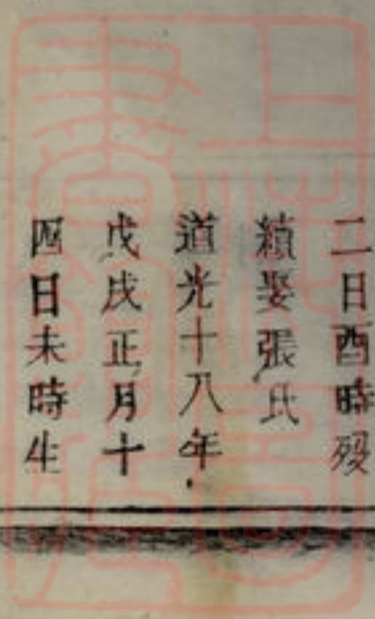 二日酉時歿
續娶張氏
道光十八年
戊戌正月十
四日未時生